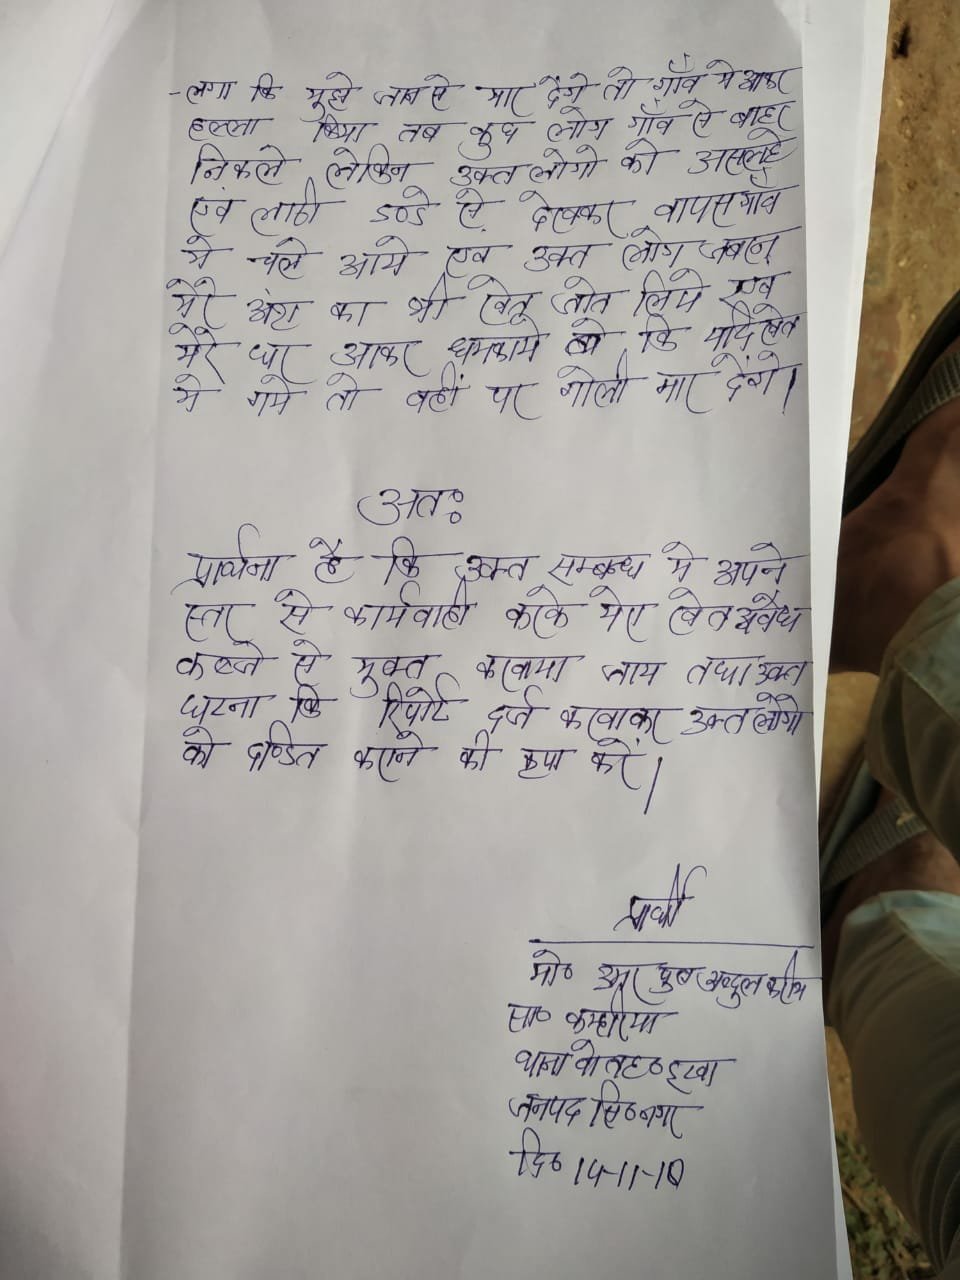 लगा कि मुझे जान से मार देंगे तो गाँव मे आकर
हल्ला किया तब कुछ लोग गाँव से बाहर
निकले लेकिन उक्त लोगो को असलहे
एवं लाठी डण्डे से देखकर वापस गाँव
मे चले आये एवं उक्त लोग जबरन
मेरे अंश का भी खेत जोत लिये एवं
मेरे घर आकर धमकाये कि यदि खेत
मे गये तो वहीं पर गोली मार देंगे।
अतः
प्रार्थना है कि उक्त सम्बन्ध मे अपने
स्तर से कार्यवाही करके मेरा खेत अवैध
कब्जे से मुक्त कराया जाय तथा उक्त
घटना कि रिपोर्ट दर्ज करवाकर उक्त लोगो
को दण्डित कराने की कृपा करें।
प्रार्थी
मो० उमर पुत्र अब्दुल करीम
सा० कम्हरिया
थाना व तह० इटवा
जनपद सि०नगर
दि० 14-11-18